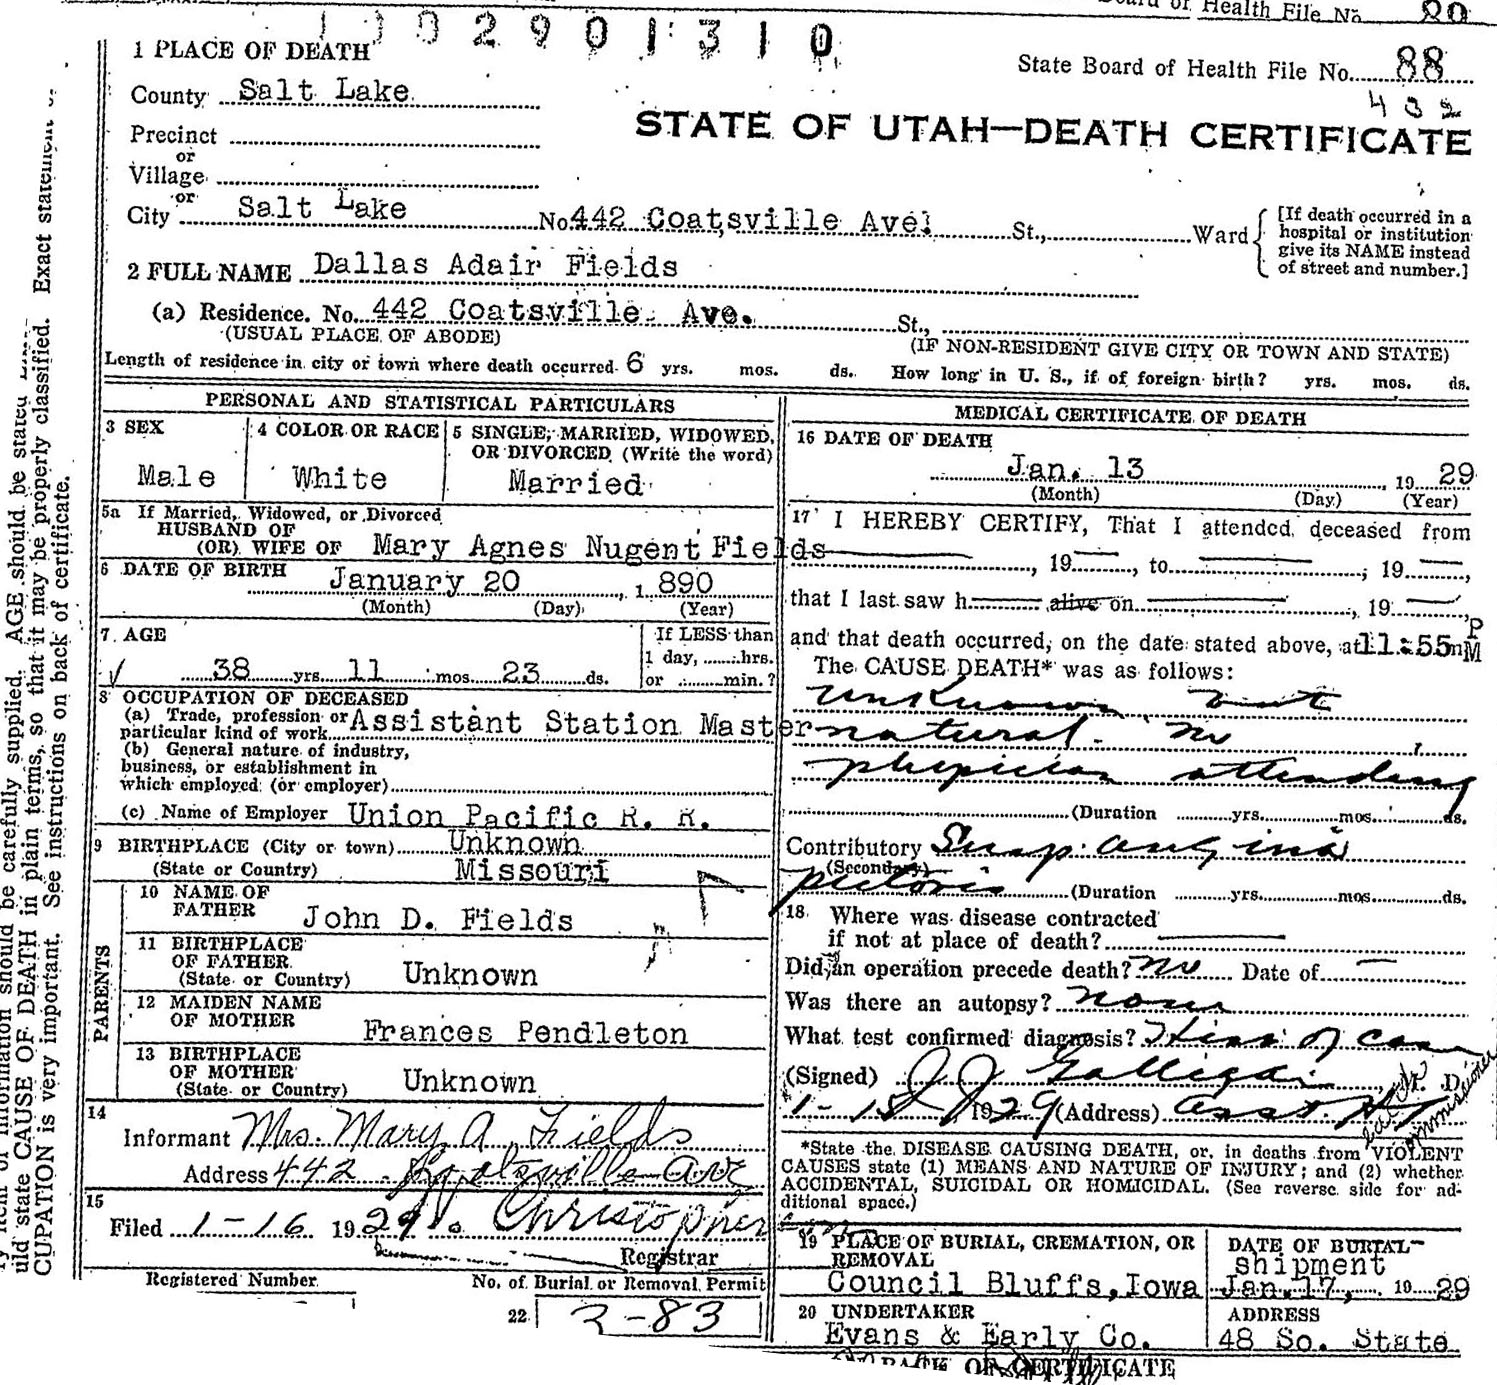 Board of Health File No. 89
1 0 0 2 9 0 1 3 1 0
1 PLACE OF DEATH
State Board of Health File No. 88
432
County Salt Lake
STATE OF UTAH—DEATH CERTIFICATE
Precinct
or
Village
or
City Salt Lake No. 442 Coatsville Ave. St., Ward
[If death occurred in a
hospital or institution
give its NAME instead
of street and number.]
2 FULL NAME Dallas Adair Fields
(a) Residence. No. 442 Coatsville Ave. St.,
(USUAL PLACE OF ABODE) (IF NON-RESIDENT GIVE CITY OR TOWN AND STATE)
Length of residence in city or town where death occurred 6 yrs. mos. ds. How long in U. S., if of foreign birth? yrs. mos. ds.
PERSONAL AND STATISTICAL PARTICULARS
3 SEX
Male
4 COLOR OR RACE
White
5 SINGLE, MARRIED, WIDOWED,
OR DIVORCED (Write the word)
Married
5a If Married, Widowed, or Divorced
HUSBAND OF
(OR) WIFE OF Mary Agnes Nugent Fields
6 DATE OF BIRTH January 20, 1890
(Month) (Day) (Year)
7 AGE
38 yrs. 11 mos. 23 ds.
If LESS than
1 day, hrs.
or min.?
8 OCCUPATION OF DECEASED
(a) Trade, profession or
particular kind of work Assistant Station Master
(b) General nature of industry,
business, or establishment in
which employed (or employer)
(c) Name of Employer Union Pacific R. R.
9 BIRTHPLACE (City or town) Unknown
(State or Country) Missouri
PARENTS
10 NAME OF
FATHER John D. Fields
11 BIRTHPLACE
OF FATHER
(State or Country) Unknown
12 MAIDEN NAME
OF MOTHER Frances Pendleton
13 BIRTHPLACE
OF MOTHER
(State or Country) Unknown
14
Informant Mrs. Mary A. Fields
Address 442 Coatsville Ave
15
Filed 1-16 1929 Christopher
Registrar
Registered Number No. of Burial or Removal Permit
22 2-83
MEDICAL CERTIFICATE OF DEATH
16 DATE OF DEATH
Jan. 13 1929
(Month) (Day) (Year)
17 I HEREBY CERTIFY, That I attended deceased from
, 19 , to , 19 ,
that I last saw h alive on , 19
and that death occurred, on the date stated above, at 11:55 P M
The CAUSE DEATH* was as follows:
unknown but
natural. no
physician attending
(Duration yrs. mos. ds.
Contributory Susp. angina
(Secondary)
pectoris (Duration yrs. mos. ds.
18 Where was disease contracted
if not at place of death?
Did an operation precede death? no Date of
Was there an autopsy? none
What test confirmed diagnosis? Hist of case
(Signed) J J Galligan, M. D.
1-15 1929 (Address) Asst. Commissioner
*State the DISEASE CAUSING DEATH, or, in deaths from VIOLENT
CAUSES state (1) MEANS AND NATURE OF INJURY; and (2) whether
ACCIDENTAL, SUICIDAL OR HOMICIDAL. (See reverse side for ad-
ditional space.)
19 PLACE OF BURIAL, CREMATION, OR
REMOVAL
Council Bluffs, Iowa
DATE OF BURIAL
shipment
Jan. 17, 1929
20 UNDERTAKER
Evans & Early Co.
ADDRESS
48 So. State
BACK OF CERTIFICATE
information should be carefully supplied. AGE should be stated
uld state CAUSE OF DEATH in plain terms, so that it may be properly classified. Exact statement of
CUPATION is very important. See instructions on back of certificate.